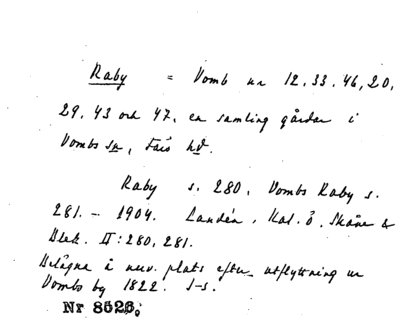 Raby = Vomb nr 12, 33, 46, 20,
29, 43 och 47, en samling gårdar i
Vombs sn, Färs hd.
Raby s. 280, Vombs Raby s.
281. - 1904. Landén, Kal. ö. Skåne &
Blek. II: 280, 281.
Belägna å nuv. plats efter utflyttning ur
Vombs by 1822. I-s.
Nr 8526.